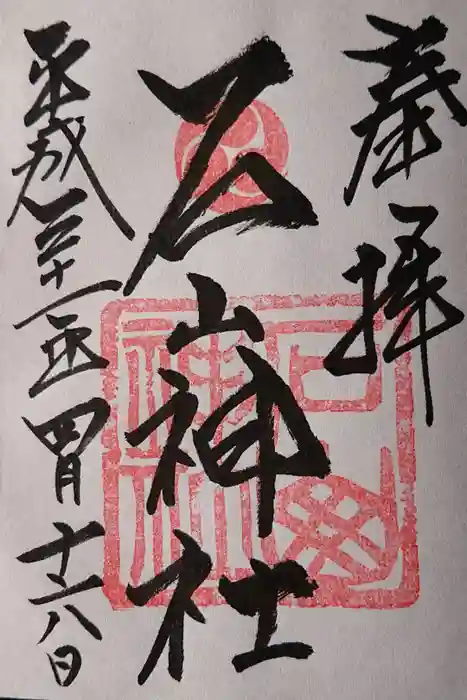 奉拝
石山神社
平成三十一年四月十二八日